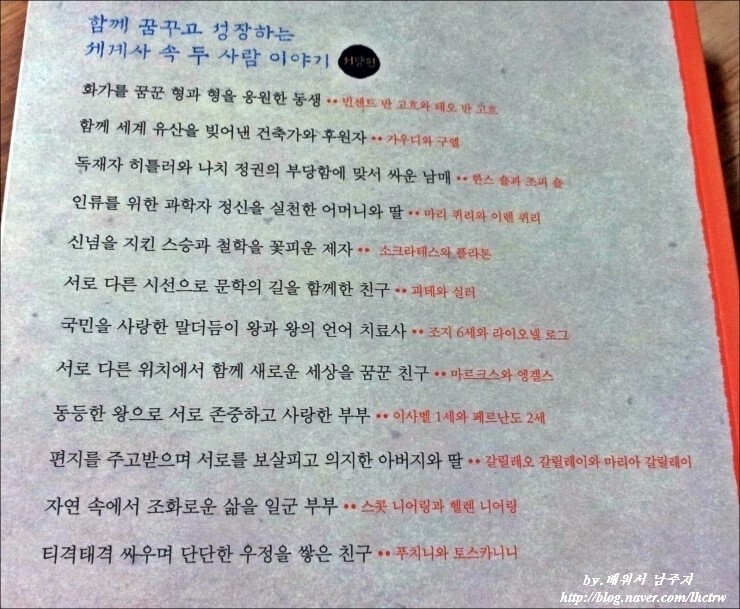 함께 꿈꾸고 성장하는
세계사 속 두 사람 이야기 서양편
화가를 꿈꾼 형과 형을 응원한 동생 •• 빈센트 반 고흐와 테오 반 고흐
함께 세계 유산을 빚어낸 건축가와 후원자 •• 가우디와 구엘
독재자 히틀러와 나치 정권의 부당함에 맞서 싸운 남매 •• 한스 숄과 조피 숄
인류를 위한 과학자 정신을 실천한 어머니와 딸 •• 마리 퀴리와 이렌 퀴리
신념을 지킨 스승과 철학을 꽃피운 제자 •• 소크라테스와 플라톤
서로 다른 시선으로 문학의 길을 함께한 친구 •• 괴테와 실러
국민을 사랑한 말더듬이 왕과 왕의 언어 치료사 •• 조지 6세와 라이오넬 로그
서로 다른 위치에서 함께 새로운 세상을 꿈꾼 친구 •• 마르크스와 엥겔스
동등한 왕으로 서로 존중하고 사랑한 부부 •• 이사벨 1세와 페르난도 2세
편지를 주고받으며 서로를 보살피고 의지한 아버지와 딸 •• 갈릴레오 갈릴레이와 마리아 갈릴레이
자연 속에서 조화로운 삶을 일군 부부 •• 스콧 니어링과 헬렌 니어링
티격태격 싸우며 단단한 우정을 쌓은 친구 •• 푸치니와 토스카니니
by.배워서 남주자
http://blog.naver.com/lhctrw